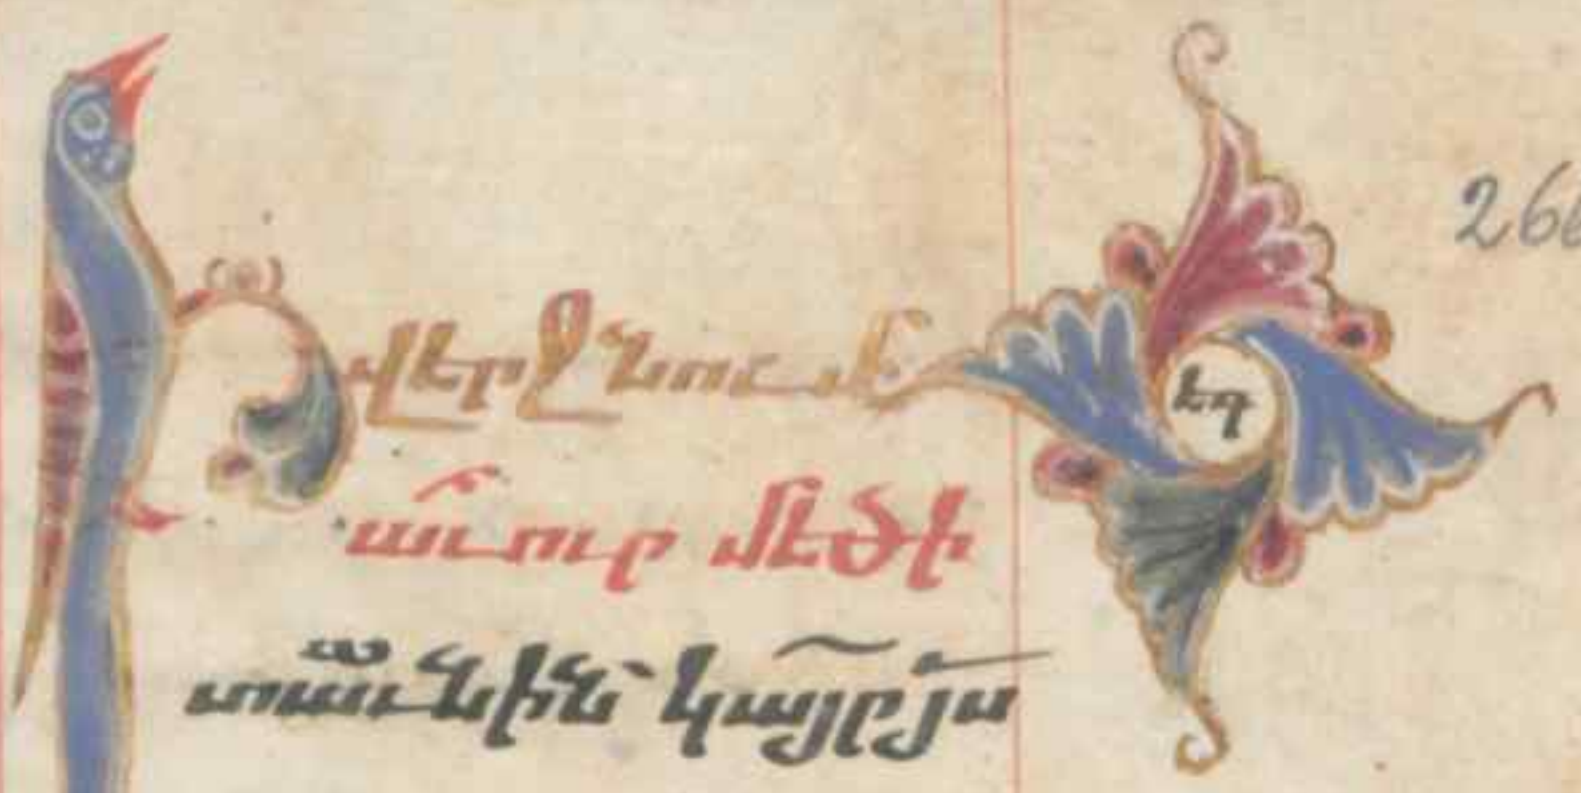 Ի վերջնում
աւուր մեծի
տաւնին՝ կայր յս